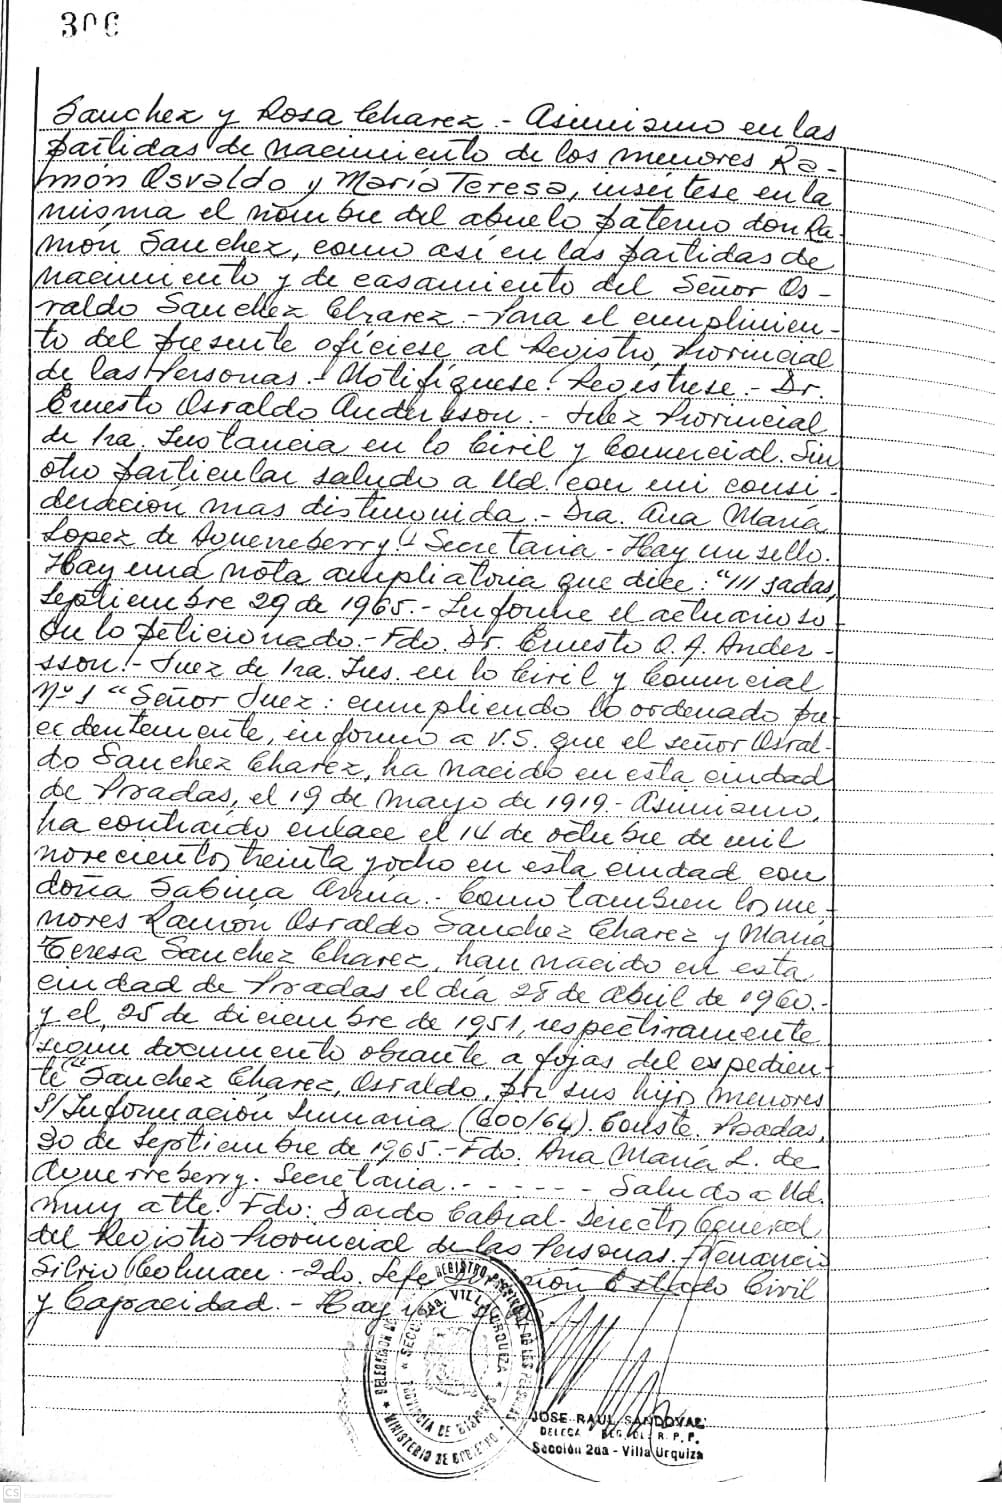 306
Sanchez y Rosa Chavez.- Asimismo en las
partidas de nacimiento de los menores Ra-
món Osvaldo y María Teresa, insértese en la
misma el nombre del abuelo paterno don Ra-
món Sanchez, como así en las partidas de
nacimiento y de casamiento del Señor Os-
valdo Sanchez Chavez.- Para el cumplimien-
to del presente ofíciese al Registro Provincial
de las Personas.- Notifíquese. Regístrese.- Dr.
Ernesto Osvaldo Andersson.- Juez Provincial
de 1ra. Instancia en lo Civil y Comercial. Sin
otro particular saludo a Ud. con mi consi-
deración mas distinguida.- Dra. Ana María
Lopez de Aguerreberry. Secretaria - Hay un sello.
Hay una nota ampliatoria que dice: "///sadas,
septiembre 29 de 1965.- Informe el actuario so-
bre lo peticionado.- Fdo. Dr. Ernesto O. A. Ander-
sson.- Juez de 1ra. Ins. en lo Civil y Comercial
Nº 1 "Señor Juez: cumpliendo lo ordenado pre-
cedentemente, informo a V.S. que el señor Osval-
do Sanchez Chavez, ha nacido en esta ciudad
de Posadas, el 19 de mayo de 1919.- Asimismo,
ha contraído enlace el 14 de octubre de mil
novecientos treinta y ocho en esta ciudad con
doña Sabina.- Como tambien los me-
nores Ramón Osvaldo Sanchez Chavez y María
Teresa Sanchez Chavez, han nacido en esta
ciudad de Posadas el día 28 de abril de 1960.-
y el 25 de diciembre de 1951, respectivamente
segun documento obrante a fojas del expedien-
te "Sanchez Chavez, Osvaldo, por sus hijos menores
S/ Información Sumaria (600/64). Conste. Posadas,
30 de septiembre de 1965.- Fdo. Ana María L. de
Aguerreberry. Secretaria.- - - - - - Saludo a Ud.
muy atte. Fdo: Dardo Cabral - Director General
del Registro Provincial de las Personas. Venancio
Silvio Colman.- 2do. Jefe Estado Civil
y Capacidad.- Hay un
REGISTRO PROVINCIAL DE LAS PERSONAS
DELEGACION
SECCION 2da. VILLA URQUIZA
PROVINCIA DE MISIONES
MINISTERIO DE GOBIERNO
JOSE RAUL SANDOVAL
R. P. P.
Sección 2da - Villa Urquiza
CS